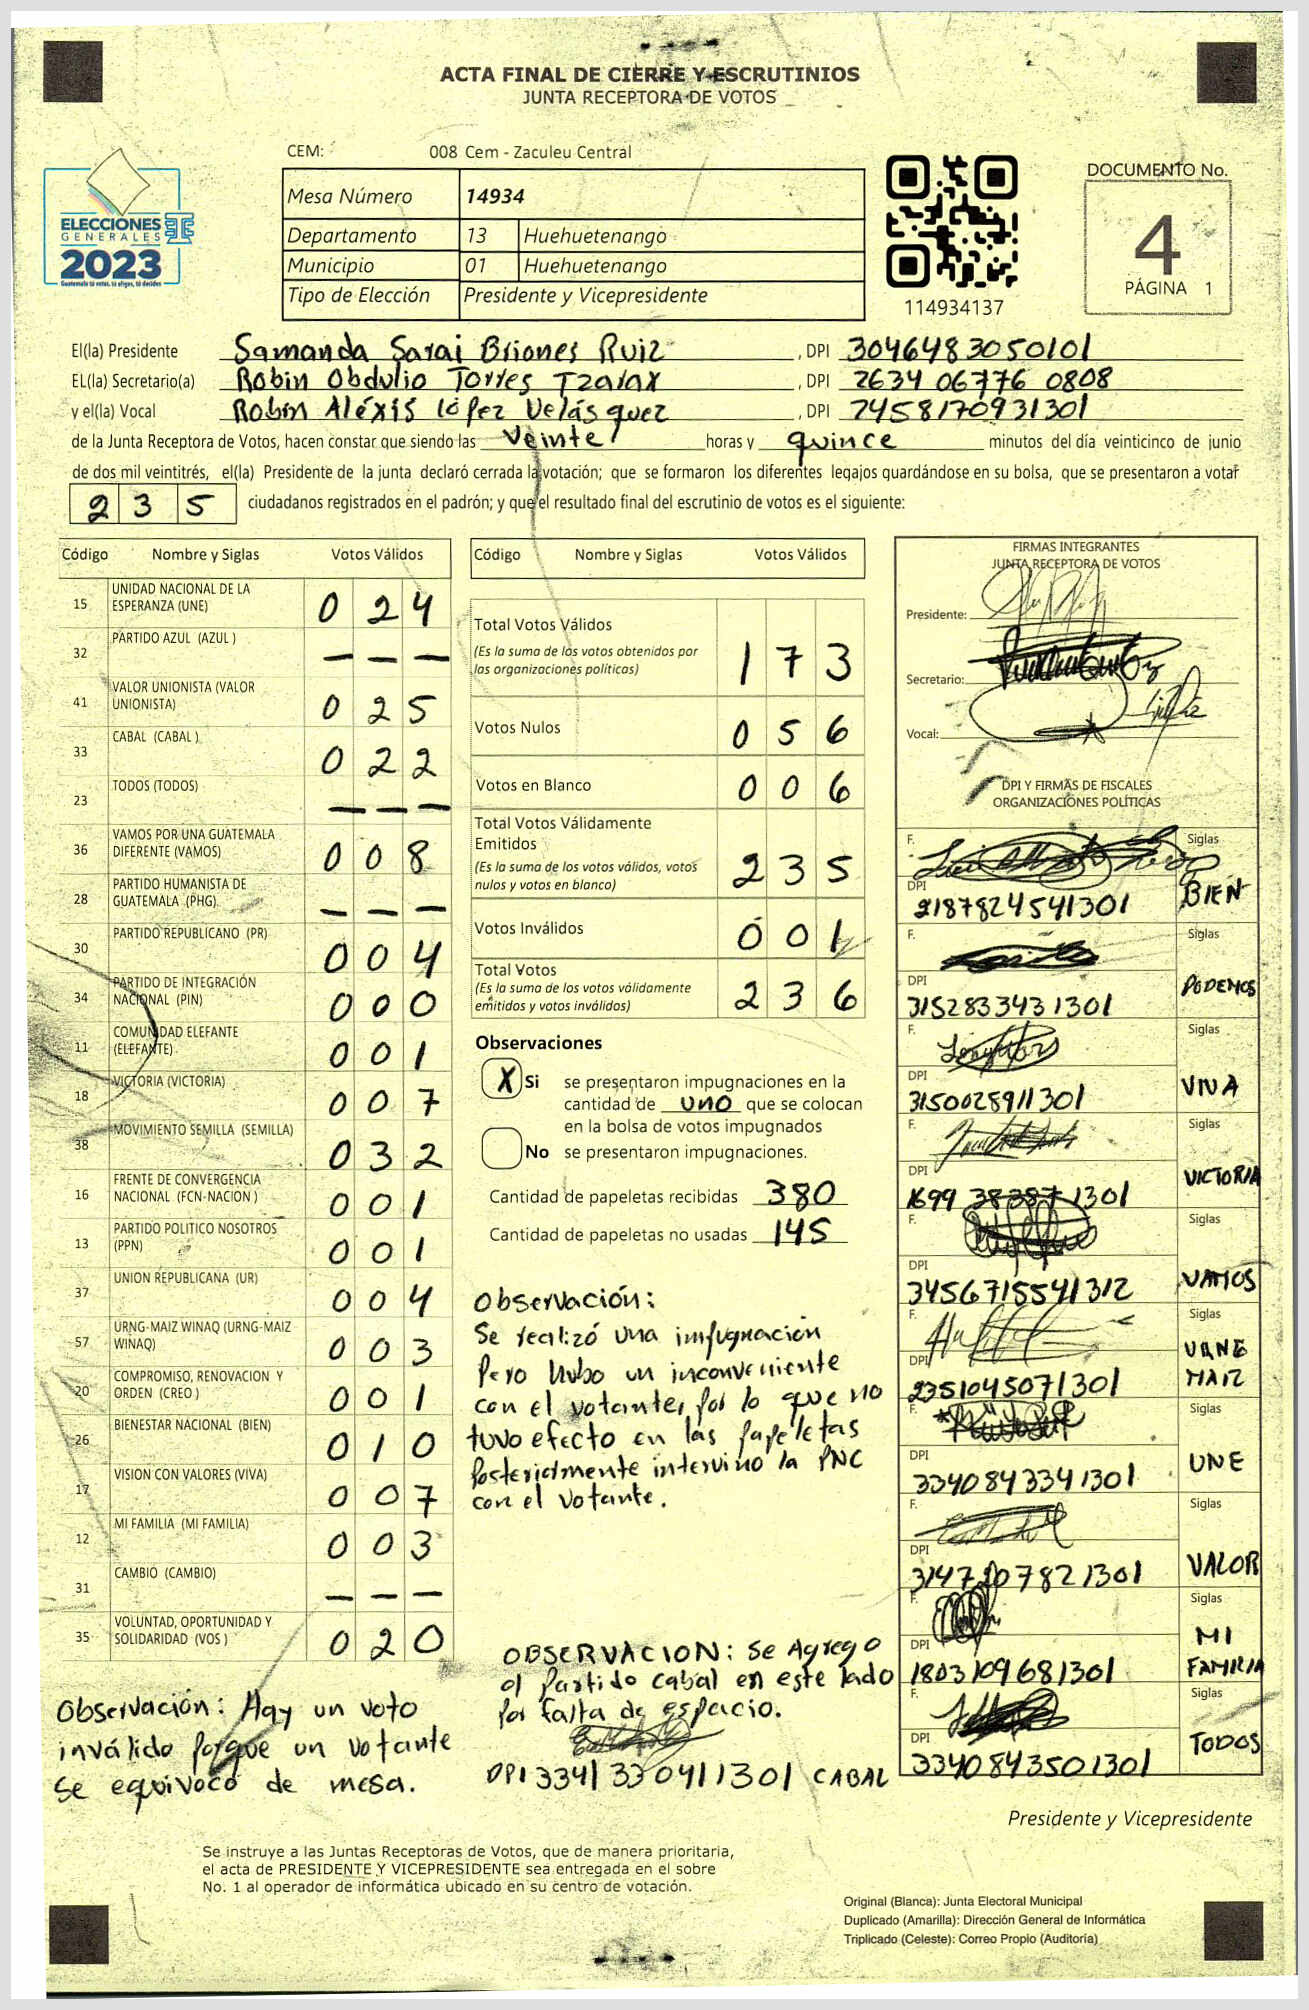 ACTA FINAL DE CIERRE Y ESCRUTINIOS
JUNTA RECEPTORA DE VOTOS
CEM: 008 Cem - Zaculeu Central
Mesa Número 14934
Departamento 13 Huehuetenango
Municipio 01 Huehuetenango
Tipo de Elección Presidente y Vicepresidente
ELECCIONES
GENERALES
2023
Guatemala tú votas, tú eliges, tú decides
114934137
DOCUMENTO No.
4
PÁGINA 1
El(la) Presidente Samanda Sarai Briones Ruiz , DPI 3046483050101
EL(la) Secretario(a) Robin Obdulio Torres Tzalax , DPI 2634 06776 0808
y el(la) Vocal Robin Aléxis López Velásquez , DPI 7458170931301
de la Junta Receptora de Votos, hacen constar que siendo las veinte horas y quince minutos del día veinticinco de junio
de dos mil veintitrés, el(la) Presidente de la junta declaró cerrada la votación; que se formaron los diferentes legajos guardándose en su bolsa, que se presentaron a votar
235 ciudadanos registrados en el padrón; y que el resultado final del escrutinio de votos es el siguiente:
Código Nombre y Siglas Votos Válidos
15 UNIDAD NACIONAL DE LA
ESPERANZA (UNE) 0 2 4
32 PARTIDO AZUL (AZUL ) — — —
41 VALOR UNIONISTA (VALOR
UNIONISTA) 0 2 5
33 CABAL (CABAL ) 0 2 2
23 TODOS (TODOS) — — —
36 VAMOS POR UNA GUATEMALA
DIFERENTE (VAMOS) 0 0 8
28 PARTIDO HUMANISTA DE
GUATEMALA (PHG) — — —
30 PARTIDO REPUBLICANO (PR) 0 0 4
34 PARTIDO DE INTEGRACIÓN
NACIONAL (PIN) 0 0 0
11 COMUNIDAD ELEFANTE
(ELEFANTE) 0 0 1
18 VICTORIA (VICTORIA) 0 0 7
38 MOVIMIENTO SEMILLA (SEMILLA) 0 3 2
16 FRENTE DE CONVERGENCIA
NACIONAL (FCN-NACION ) 0 0 1
13 PARTIDO POLITICO NOSOTROS
(PPN) 0 0 1
37 UNION REPUBLICANA (UR) 0 0 4
57 URNG-MAIZ WINAQ (URNG-MAIZ
WINAQ) 0 0 3
20 COMPROMISO, RENOVACION Y
ORDEN (CREO ) 0 0 1
26 BIENESTAR NACIONAL (BIEN) 0 1 0
17 VISION CON VALORES (VIVA) 0 0 7
12 MI FAMILIA (MI FAMILIA) 0 0 3
31 CAMBIO (CAMBIO) — — —
35 VOLUNTAD, OPORTUNIDAD Y
SOLIDARIDAD (VOS ) 0 2 0
Observación: Hay un voto
inválido porque un votante
se equivocó de mesa.
Código Nombre y Siglas Votos Válidos
Total Votos Válidos
(Es la suma de los votos obtenidos por
las organizaciones políticas) 1 7 3
Votos Nulos 0 5 6
Votos en Blanco 0 0 6
Total Votos Válidamente
Emitidos
(Es la suma de los votos válidos, votos
nulos y votos en blanco) 2 3 5
Votos Inválidos 0 0 1
Total Votos
(Es la suma de los votos válidamente
emitidos y votos inválidos) 2 3 6
Observaciones
X Si se presentaron impugnaciones en la
cantidad de uno que se colocan
en la bolsa de votos impugnados
No se presentaron impugnaciones.
Cantidad de papeletas recibidas 380
Cantidad de papeletas no usadas 145
Observación:
Se realizó una impugnación
Pero hubo un inconveniente
con el votante, por lo que no
tuvo efecto en las papeletas
Posteriormente intervino la PNC
con el votante.
OBSERVACION: Se Agrego
al Partido cabal en este lado
por falta de espacio.
DPI 3341 33041 1301 CABAL
FIRMAS INTEGRANTES
JUNTA RECEPTORA DE VOTOS
Presidente:
Secretario:
Vocal:
DPI Y FIRMAS DE FISCALES
ORGANIZACIONES POLÍTICAS
F. Siglas
DPI 2187824541301 BIEN
F. Siglas
DPI 3152833431301 PODEMOS
F. Siglas
DPI 3150028911301 VIVA
F. Siglas
DPI 1699 38387 1301 VICTORIA
F. Siglas
DPI 3456715541312 VAMOS
F. Siglas
DPI 2351045071301 URNG
MAIZ
F. Siglas
DPI 3340843341301 UNE
F. Siglas
DPI 3147207821301 VALOR
F. Siglas
DPI 1803109681301 MI
FAMILIA
F. Siglas
DPI 3340843501301 TODOS
Presidente y Vicepresidente
Se instruye a las Juntas Receptoras de Votos, que de manera prioritaria,
el acta de PRESIDENTE Y VICEPRESIDENTE sea entregada en el sobre
No. 1 al operador de informática ubicado en su centro de votación.
Original (Blanca): Junta Electoral Municipal
Duplicado (Amarilla): Dirección General de Informática
Triplicado (Celeste): Correo Propio (Auditoría)